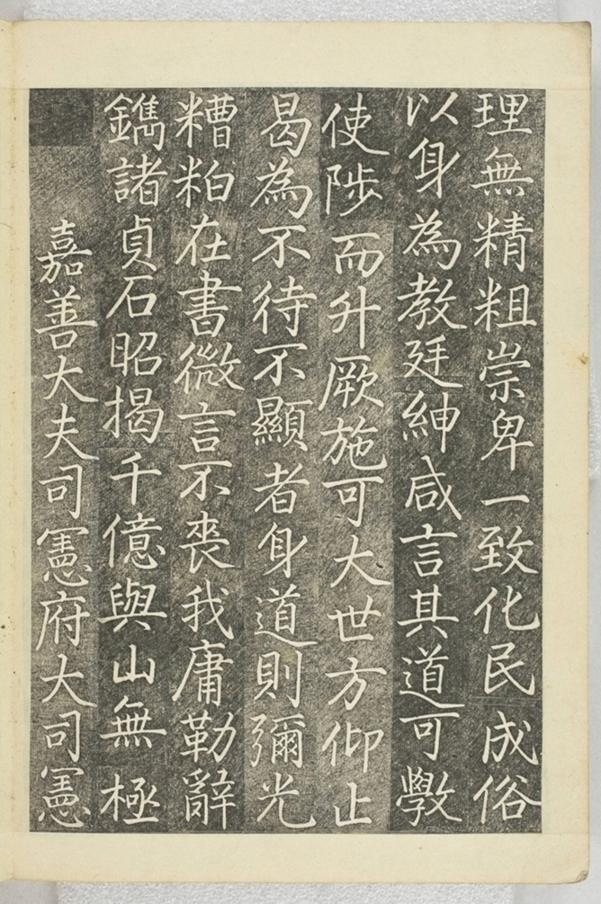 理無精粗崇卑一致化民成俗
以身為教廷紳咸言其道可斆
使陟而升厥施可大世方仰止
曷為不待不顯者身道則彌光
糟粕在書微言不喪我庸勒辭
鐫諸貞石昭揭千億與山無極
嘉善大夫司憲府大司憲